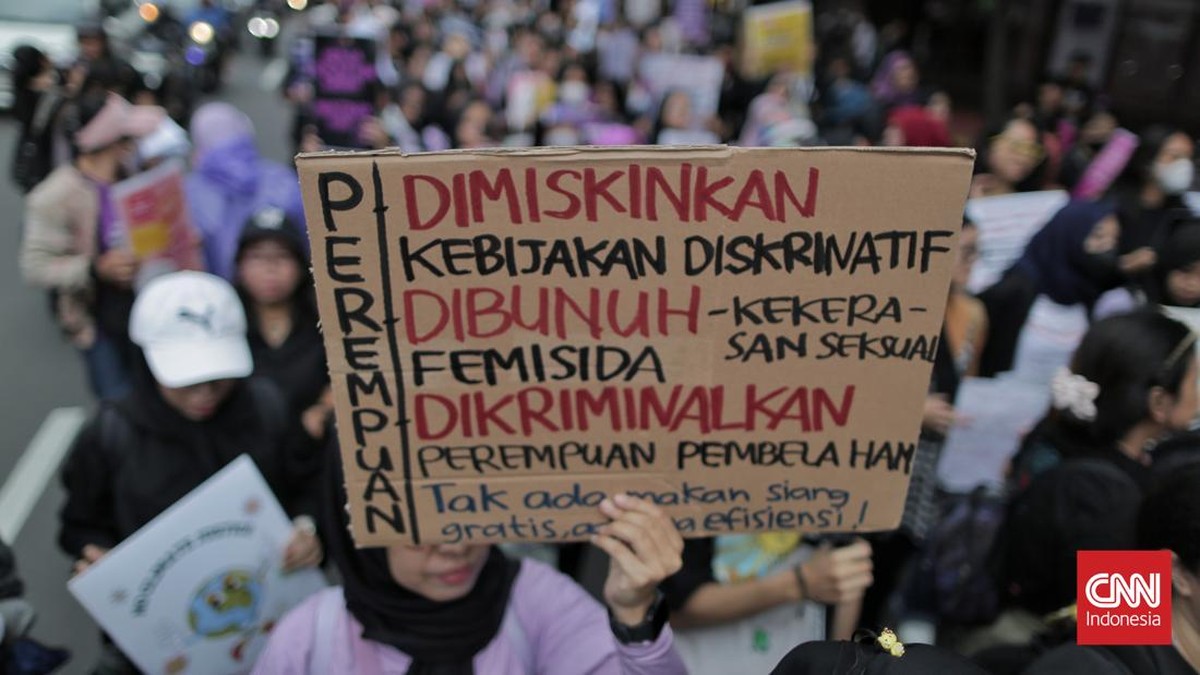 PEREMPUAN
DIMISKINKAN
KEBIJAKAN DISKRINATIF
DIBUNUH -KEKERA-
FEMISIDA SAN SEKSUAL
DIKRIMINALKAN
PEREMPUAN PEMBELA HAM
Tak ada makan siang
gratis, efisiensi!
CNN
Indonesia